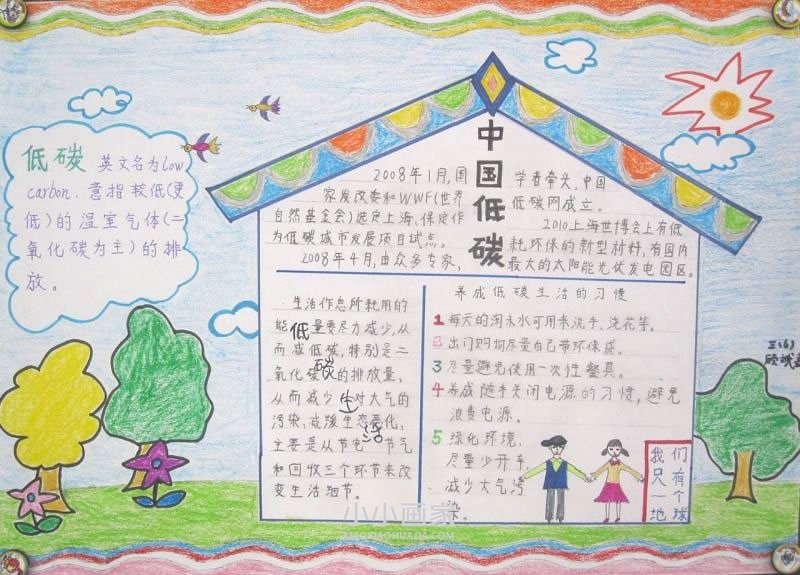 低碳 英文名为low
carbon. 意指较低(更
低)的温室气体(二
氧化碳为主)的排
放。
中国低碳
2008年1月,国
家发改委和WWF(世界
自然基金会)选定上海、保定作
为低碳城市发展项目试点。
2008年4月,由众多专家、
学者牵头,中国
低碳网成立.
2010上海世博会上有低
耗环保的新型材料,有国内
最大的太阳能光伏发电园区。
生活作息所耗用的
能量要尽力减少,从
而减低碳,特别是二
氧化碳的排放量,
从而减少对大气的
污染,减缓生态恶化,
主要是从节电 节气
和回收三个环节来改
变生活细节。
低碳生活
养成低碳生活的习惯
1 每天的淘米水可用来洗手、浇花等。
2 出门购物尽量自己带环保袋。
3 尽量避免使用一次性餐具。
4 养成随手关闭电源的习惯,避免
浪费电源。
5 绿化环境,
尽量少开车,
减少大气污
染。
我们
只有
一个
地球
三(6)
小小画家
XIAOXIAOHUAJIA.COM